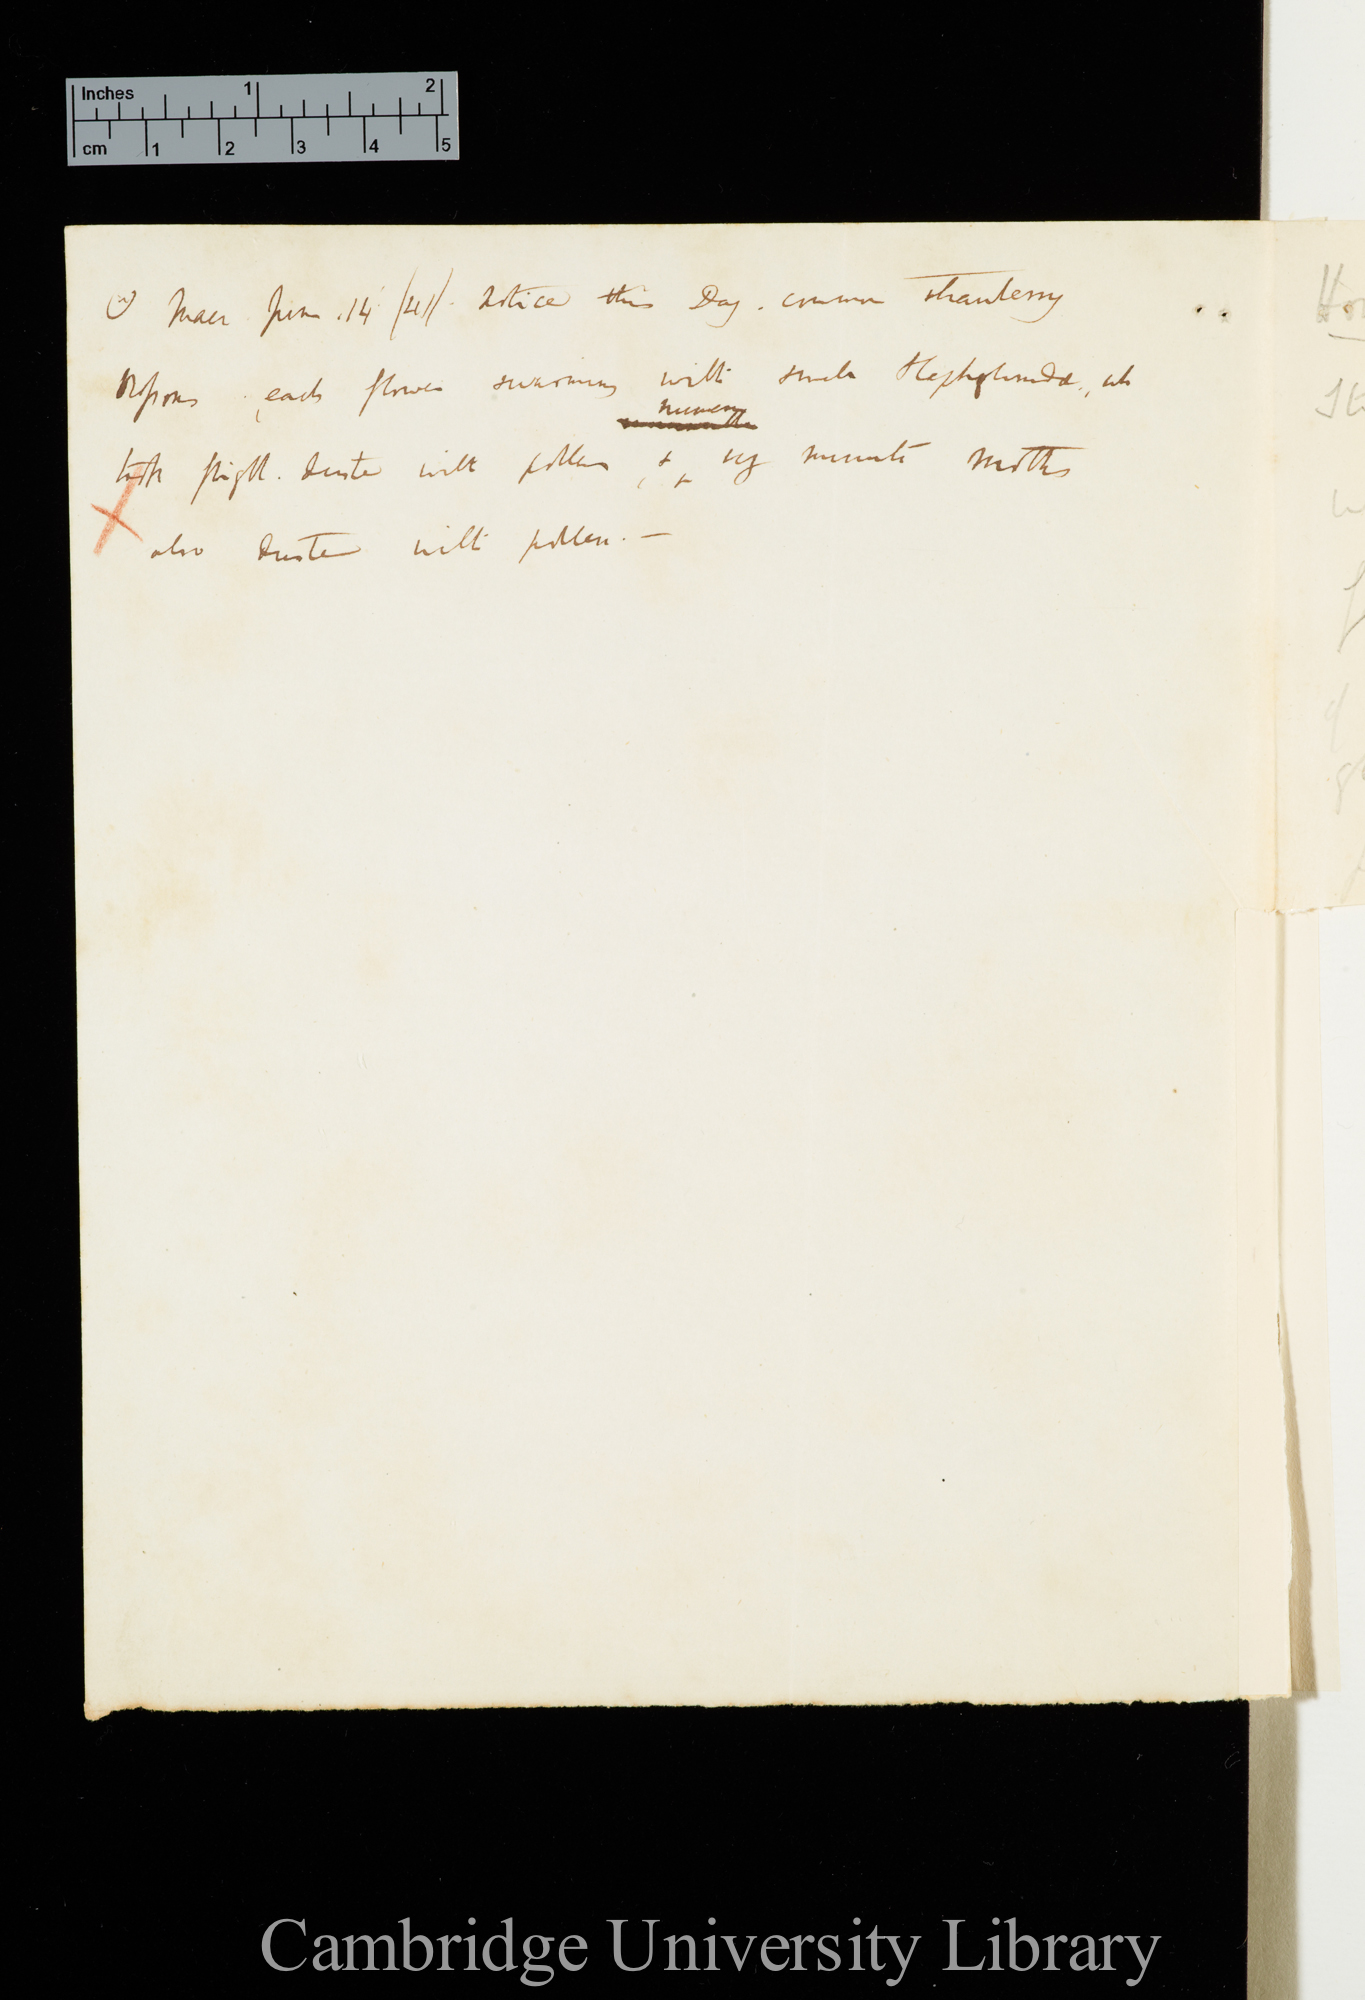 Inches 1 2
cm 1 2 3 4 5
Maer June 14 /41/. Notice this Day. common Strawberry
Blossoms, each flower swarming with small Staphylinidæ, wh
took flight. dusted with pollen, & numerous vy minute moths
also dusted with pollen. —
Cambridge University Library